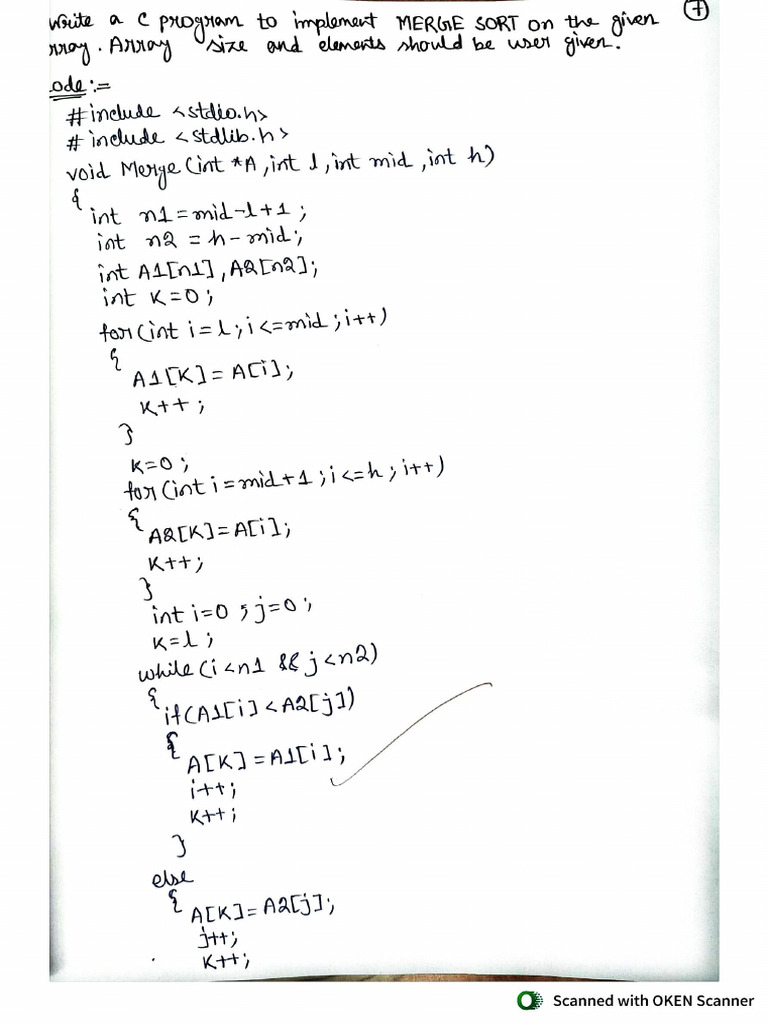 Write a C program to implement MERGE SORT on the given
rray. Array size and elements should be user given.
7
ode:=
#include <stdio.h>
#include <stdlib.h>
void Merge(int *A,int l,int mid,int h)
{
int n1=mid-l+1;
int n2=h-mid;
int A1[n1],A2[n2];
int K=0;
for(int i=l;i<=mid;i++)
{
A1[K]=A[i];
K++;
}
K=0;
for(int i=mid+1;i<=h;i++)
{
A2[K]=A[i];
K++;
}
int i=0,j=0;
K=l;
while(i<n1 && j<n2)
{
if(A1[i]<A2[j])
{
A[K]=A1[i];
i++;
K++;
}
else
{
A[K]=A2[j];
j++;
K++;
Scanned with OKEN Scanner